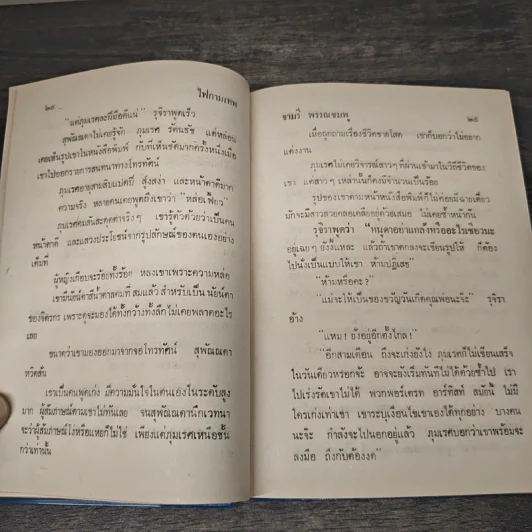 ๒๔
ไฟกามเทพ
"แต่ภูมเรศละฝีมือดีแน่" รุจิราพูดเร็ว
สุพัณณดาไม่เคยรู้จัก ภูมเรศ รัตนชัย แต่หล่อน
เคยเห็นรูปเขาในหนังสือพิมพ์ กับที่เห็นชัดมากครั้งหนึ่งเมื่อ
เขาไปออกรายการสนทนาทางโทรทัศน์
ภูมเรศอายุสามสิบแปดปี สูงสง่า และหน้าตาดีมาก
ความจริง หลายคนเคยพูดถึงเขาว่า "หล่อเฟี้ยว"
ภูมเรศคมสันสะดุดตาจริงๆ เขารู้ตัวด้วยว่าเป็นคน
หน้าตาดี และแสวงประโยชน์จากรูปลักษณ์ของตนเองอย่าง
เต็มที่
ผู้หญิงเกือบจะร้อยทั้งร้อย หลงเขาเพราะความหล่อ
เขามีนัยน์ตาสีน้ำตาลคมที่ สมแล้ว สำหรับเป็น นัยน์ตา
ของจิตรกร เพราะดูจะมองได้ทั้งกว้างทั้งลึก ไม่เคยพลาดอะไร
เลย
ขนาดว่าเขามองออกมาจากจอโทรทัศน์ สุพัณณดา
หวิดสั่น
เขาเป็นคนพูดเก่ง มีความมั่นใจในตนเองในระดับสูง
มาก ผู้สัมภาษณ์ตามเขาไม่ทันเลย จนสุพัณณดานึกเวทนา
จะว่าผู้สัมภาษณ์โง่หรือแหยก็ไม่ใช่ เพียงแต่ภูมเรศเหนือชั้น
กว่าเท่านั้น
จามรี พรรณชมพู
๒๕
เมื่อถูกถามเรื่องชีวิตชายโสด เขาก็บอกว่าไม่อยาก
แต่งงาน
ภูมเรศไม่เคยวิจารณ์สาวๆ ที่ผ่านเข้ามาในวิถีชีวิตของ
เขา แต่สาวๆ เหล่านั้นก็คงมีจำนวนเป็นร้อย
รูปของเขาตามหน้าหนังสือพิมพ์ก็ไม่ค่อยมีฉายเดี่ยว
มักจะมีสาวสวยคลอเคลียอยู่ด้วยเสมอ ไม่เคยซ้ำหน้ากัน
รุจิราพูดว่า "หนูดาอย่าแกล้งหรืออะไรเชียวนะ
อยู่เฉยๆ ยังงี้แหละ แล้วถ้าเขาตกลงจะเขียนรูปให้ ก็ต้อง
ไปนั่งเป็นแบบให้เขา ห้ามปฏิเสธ"
"ห้ามหรือคะ?"
"แม่จะให้เป็นของขวัญวันเกิดคุณพ่อนะจ๊ะ" รุจิรา
อ้าง
"แหม! ยังอยู่อีกตั้งไกล!"
"อีกสามเดือน ถึงจะเก่งยังไง ภูมเรศก็ไม่เขียนเสร็จ
ในวันเดียวหรอกจ้ะ อาจจะยังเริ่มทันทีไม่ได้ด้วยซ้ำไป เรา
ไปเร่งรัดเขาไม่ได้ พวกพอร์เตรท อาร์ทิสท์ สมัยนี้ ไม่มี
ใครเก่งเท่าเขา เขาระบุเงื่อนไขเขาเองได้ทุกอย่าง บางคน
นะจ๊ะ กำลังจะไปนอกอยู่แล้ว ภูมเรศบอกว่าเขาพร้อมจะ
ลงมือ ถึงกับต้องงด"